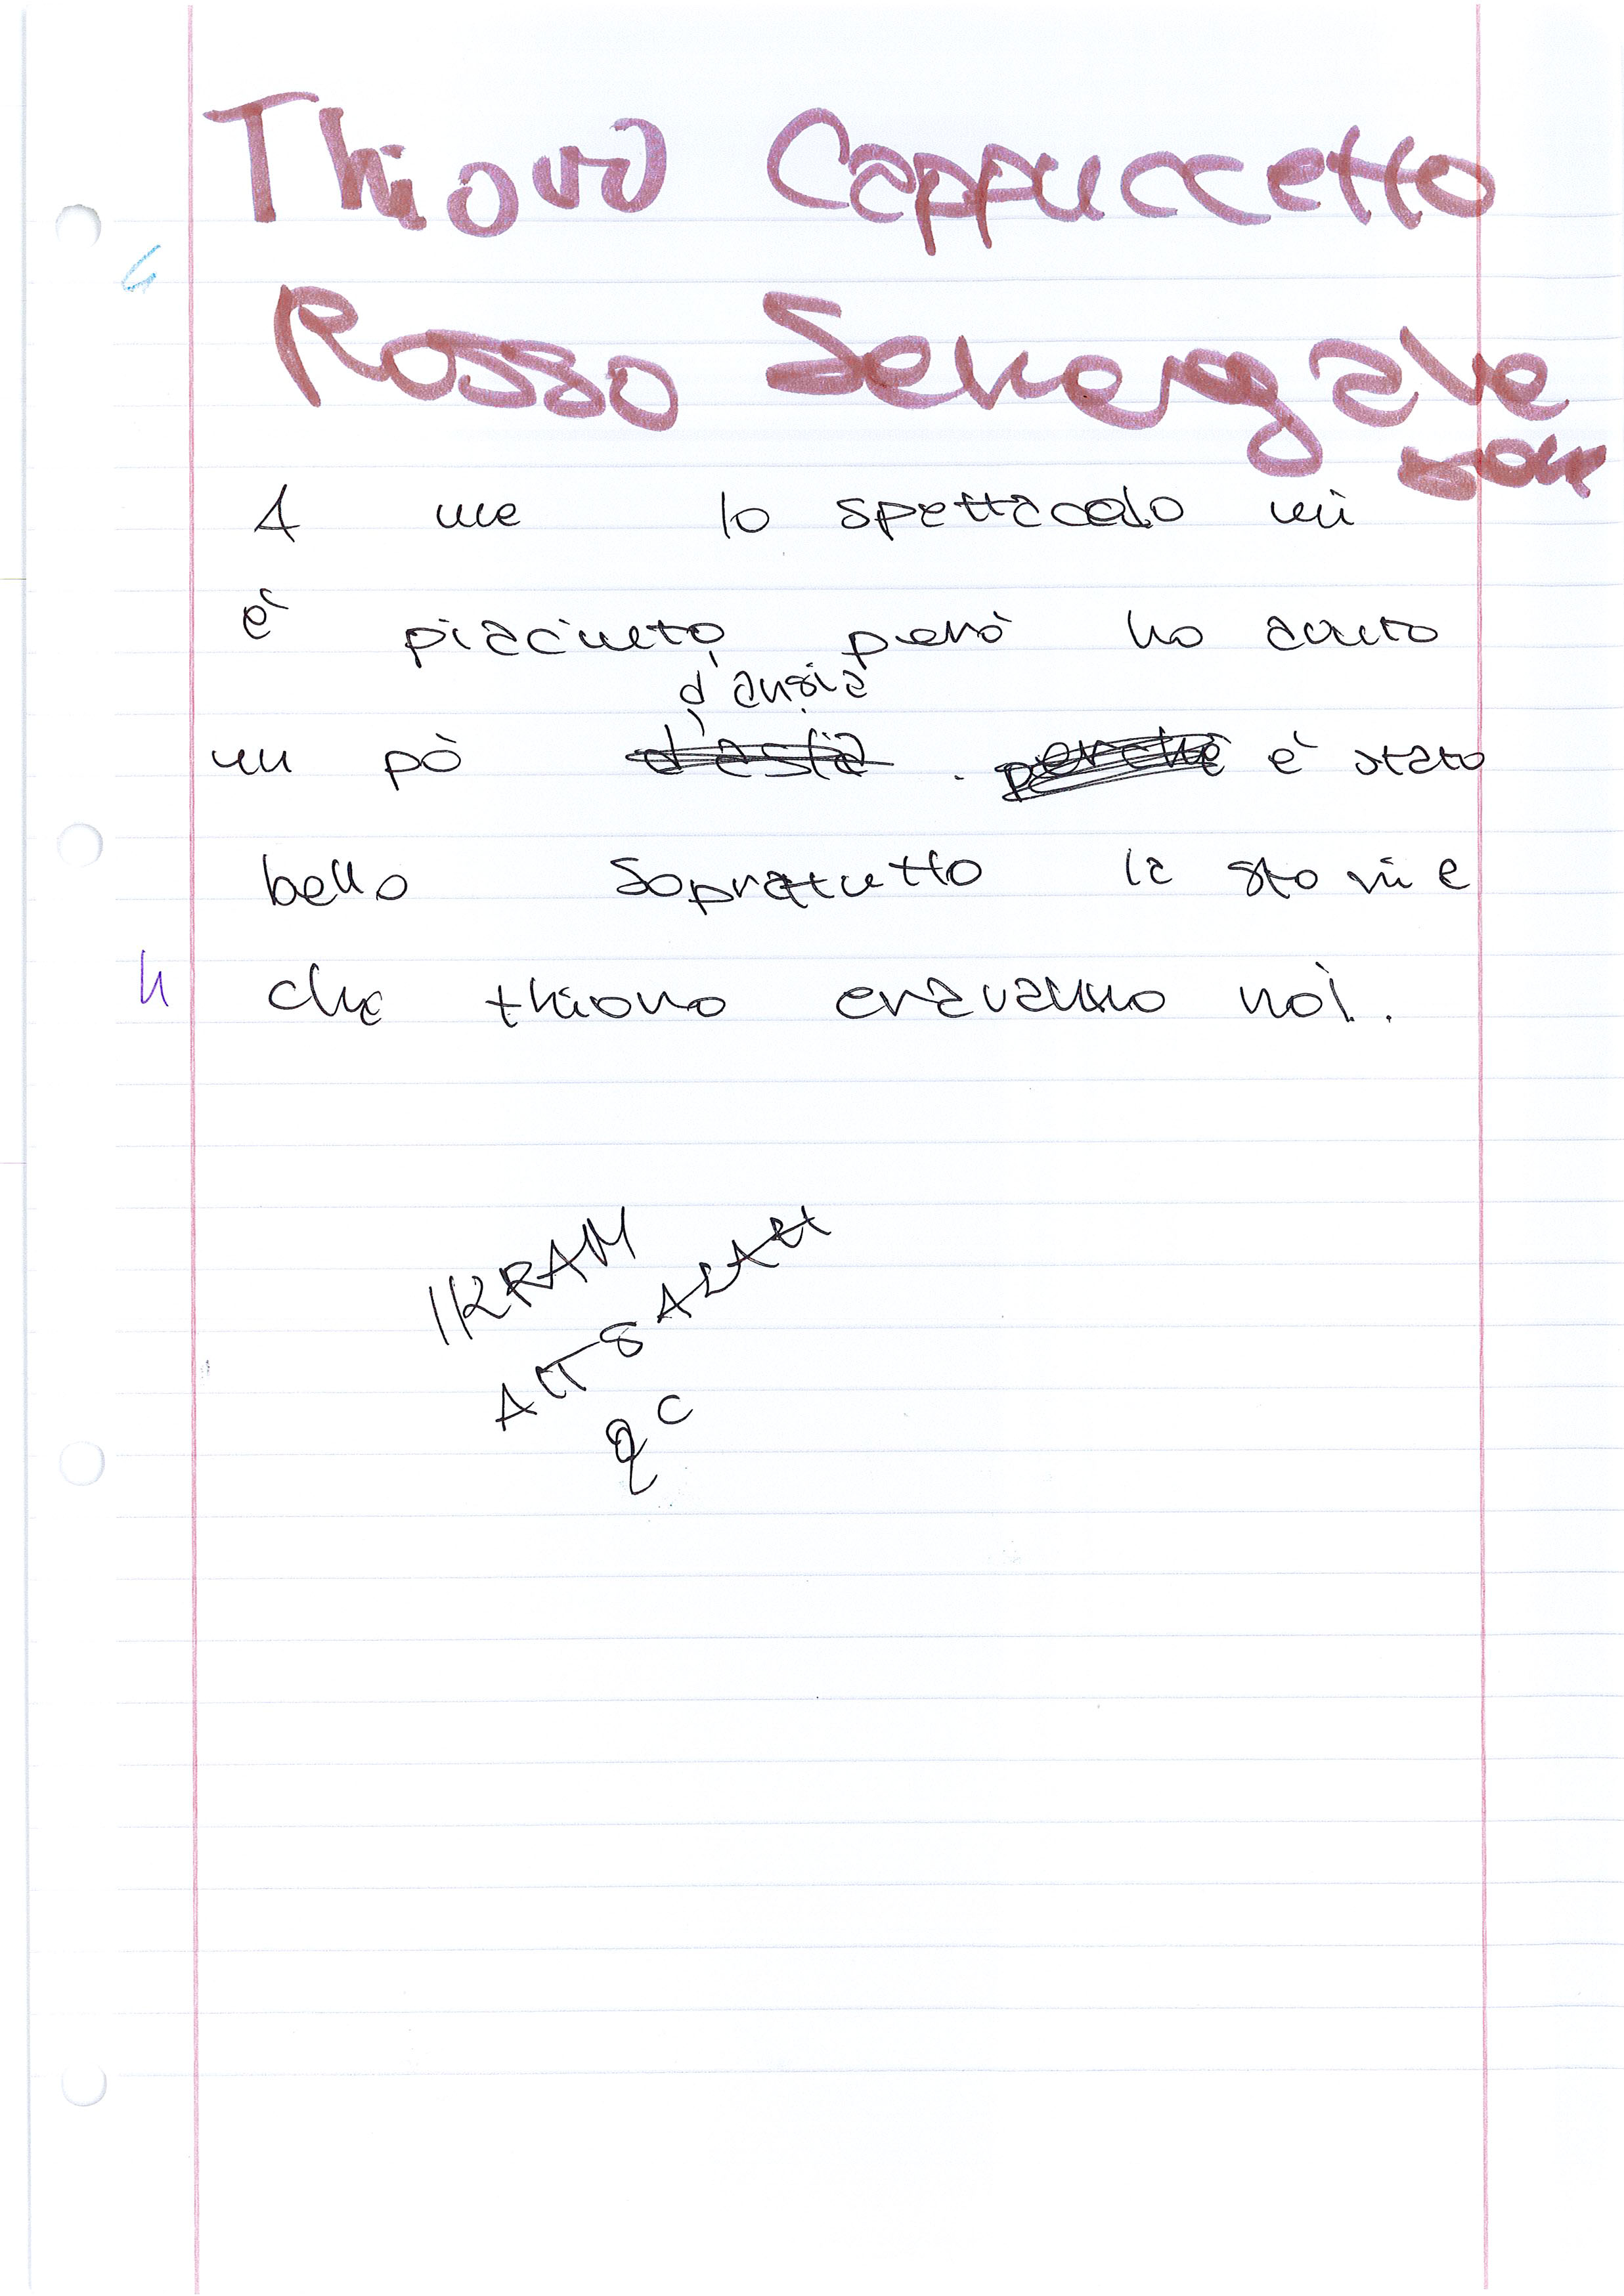 Thiovo Cappuccetto
Rosso Senegale
se
A me lo spettacolo mi
è piaciuto, però ho avuto
d'ansia
un pò d'asia . perché è stato
bello soprattutto la storia
che thiovo eravamo noi.
IKRAM
AIT SALAH
2 C